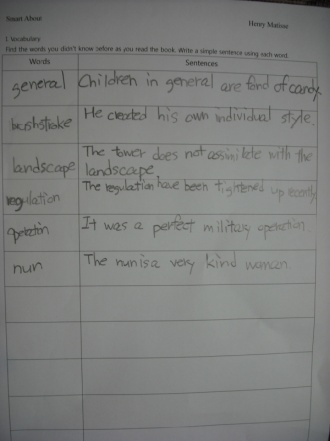 Smart About
Henry Matisse
I. Vocabulary
Find the words you didn't know before as you read the book. Write a simple sentence using each word.
Words Sentences
general Children in general are fond of candy.
brushstroke He created his own individual style.
landscape The tower does not assimilate with the
landscape.
regulation The regulation have been tightened up recently
operation It was a perfect military operation.
nun The nun is a very kind woman.